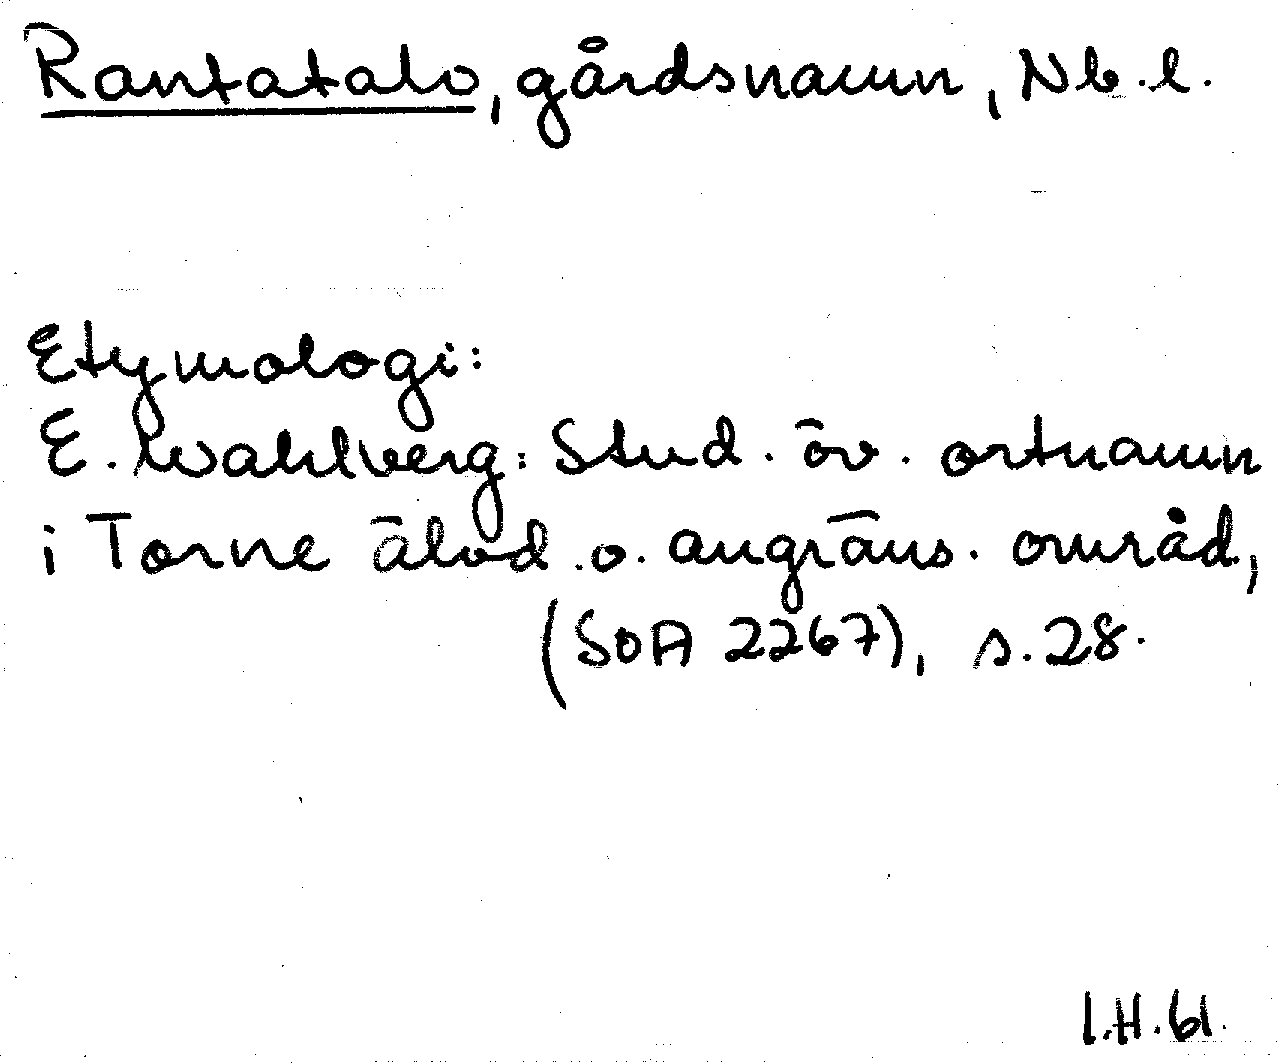 Rantatalo, gårdsnamn, Nb.l.
Etymologi:
E. Wahlberg: Stud. öv. ortnamn
i Torne älvd. o. angräns. områd,
(SOA 2267), s.28.
I.H.61.